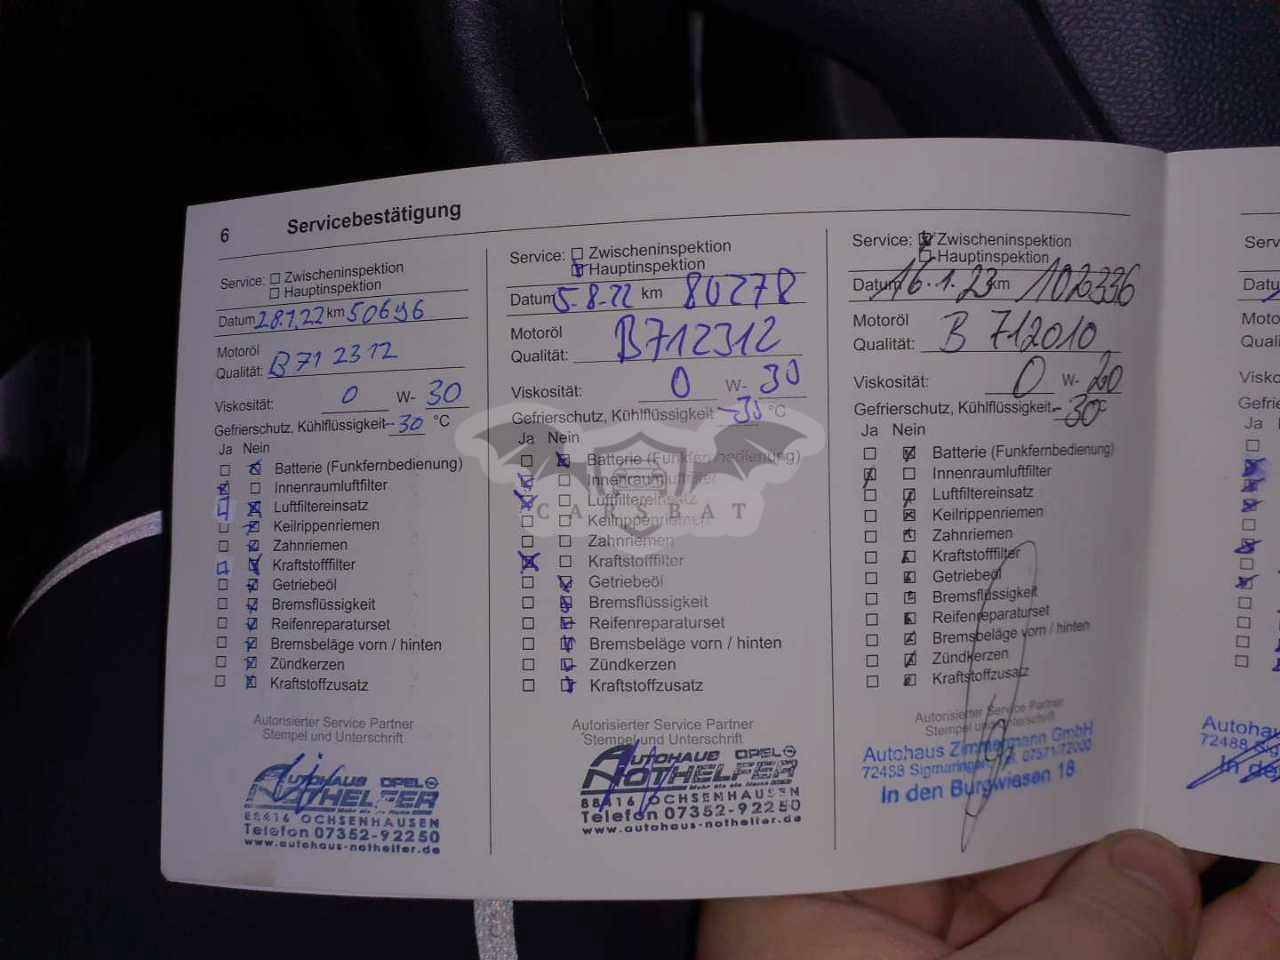 6 Servicebestätigung
Service: Zwischeninspektion
Hauptinspektion
Datum 28.1.22 km 50696
Motoröl
Qualität: B 71 2312
Viskosität: 0 W- 30
Gefrierschutz, Kühlflüssigkeit -30 °C
Ja Nein
Batterie (Funkfernbedienung)
Innenraumluftfilter
Luftfiltereinsatz
Keilrippenriemen
Zahnriemen
Kraftstofffilter
Getriebeöl
Bremsflüssigkeit
Reifenreparaturset
Bremsbeläge vorn / hinten
Zündkerzen
Kraftstoffzusatz
Autorisierter Service Partner
Stempel und Unterschrift
AUTOHAUS OPEL
NOTHELFER
88416 OCHSENHAUSEN
Telefon 07352-92250
www.autohaus-nothelfer.de
Service: Zwischeninspektion
Hauptinspektion
Datum 5.8.22 km 80278
Motoröl
Qualität: B712312
Viskosität: 0 W- 30
Gefrierschutz, Kühlflüssigkeit -30 °C
Ja Nein
Batterie (Funkfernbedienung)
Innenraumluftfilter
Luftfiltereinsatz
Keilrippenriemen
Zahnriemen
Kraftstofffilter
Getriebeöl
Bremsflüssigkeit
Reifenreparaturset
Bremsbeläge vorn / hinten
Zündkerzen
Kraftstoffzusatz
Autorisierter Service Partner
Stempel und Unterschrift
AUTOHAUS OPEL
NOTHELFER
88416 OCHSENHAUSEN
Telefon 07352-92250
www.autohaus-nothelfer.de
CARSBAT
Service: Zwischeninspektion
Hauptinspektion
Datum 16.1.23 km 102336
Motoröl
Qualität: B 712010
Viskosität: 0 W- 20
Gefrierschutz, Kühlflüssigkeit -30°C
Ja Nein
Batterie (Funkfernbedienung)
Innenraumluftfilter
Luftfiltereinsatz
Keilrippenriemen
Zahnriemen
Kraftstofffilter
Getriebeöl
Bremsflüssigkeit
Reifenreparaturset
Bremsbeläge vorn / hinten
Zündkerzen
Kraftstoffzusatz
Autorisierter Service Partner
Stempel und Unterschrift
Autohaus Zimmermann GmbH
72488 Sigmaringen, Tel. 07571-72000
In den Burgwiesen 18
Ja
Autohaus
72488
In den